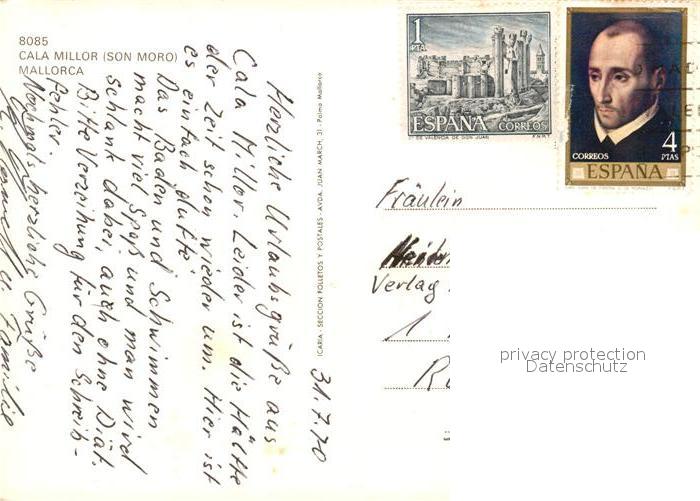 8085
CALA MILLOR (SON MORO)
MALLORCA
31.7.70
Herzliche Urlaubsgrüße aus
Cala Millor. Leider ist die Hälfte
der Zeit schon wieder um. Hier ist
es einfach dufte!
Das Baden und Schwimmen
macht viel Spaß und man wird
schlank dabei, auch ohne Diät.
Bitte Verzeihung für den Schreib-
fehler.
Nochmals herzliche Grüße
u. Familie
ICARIA - SECCION FOLLETOS Y POSTALES - AVDA. JUAN MARCH, 31 - Palma Mallorca
1
PTA
ESPAÑA CORREOS
CORREOS
4
PTAS
ESPAÑA
Fräulein
Verlag
1
privacy protection
Datenschutz